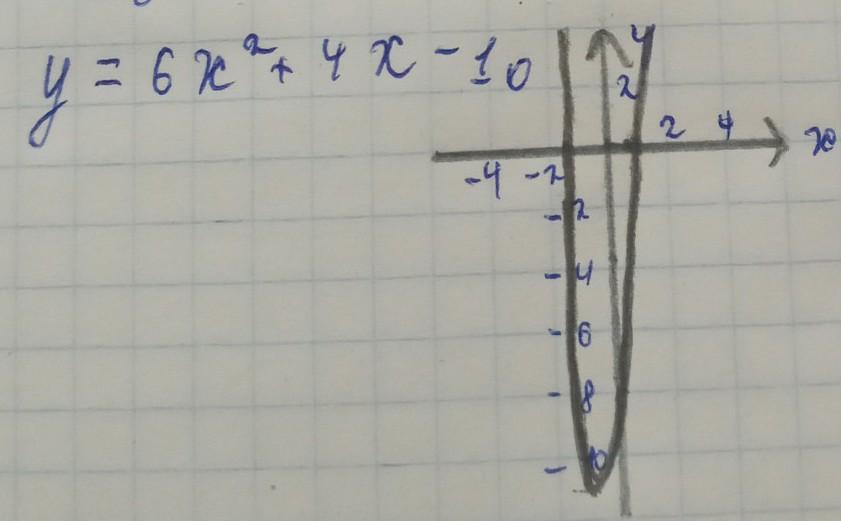 y = 6x² + 4x - 10
y
2
2 4 x
-4 -2
-2
-4
-6
-8
-10